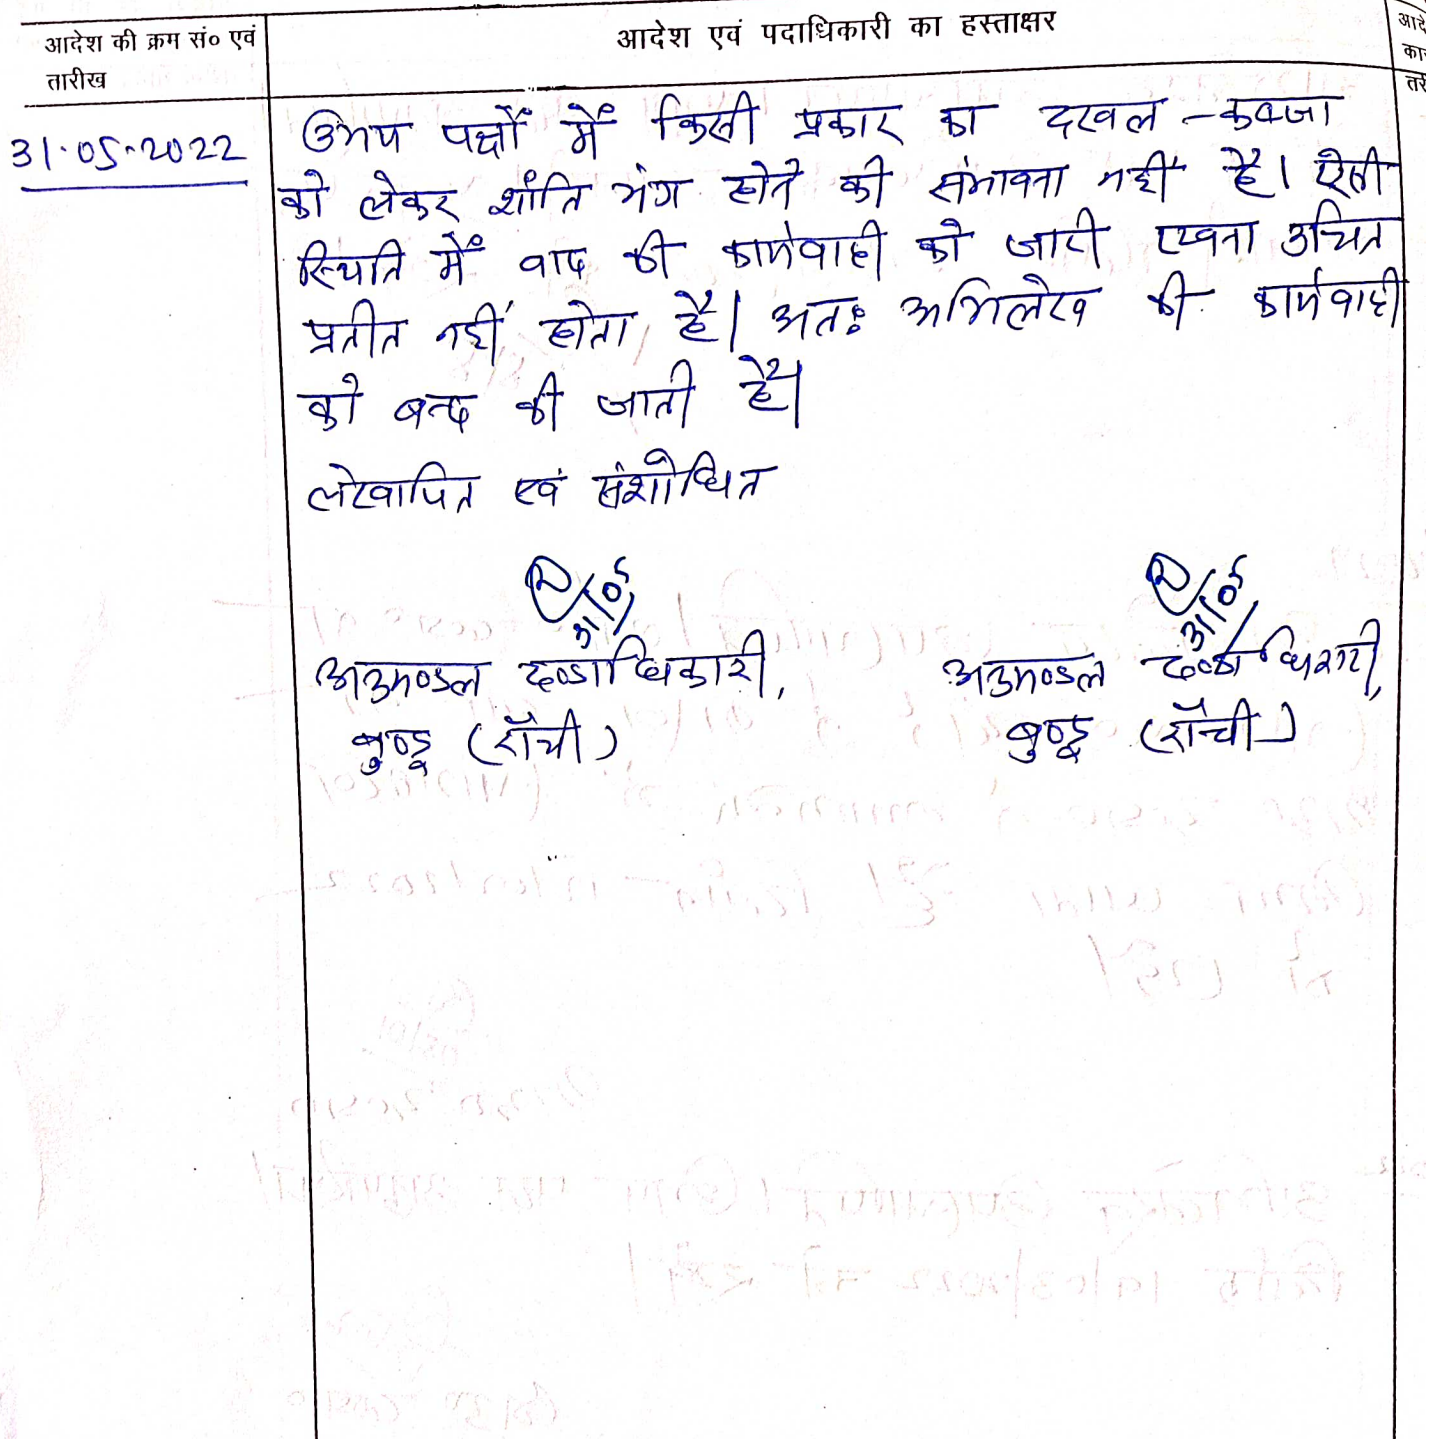 आदेश की क्रम सं० एवं
तारीख
आदेश एवं पदाधिकारी का हस्ताक्षर
आदे
का
तर
31.05.2022
उभय पक्षों में किसी प्रकार का दखल-कब्जा
को लेकर शांति भंग होने की संभावना नहीं है। ऐसी
स्थिति में वाद की कार्यवाही को जारी रखना उचित
प्रतीत नहीं होता है। अतः अभिलेख की कार्यवाही
को बन्द की जाती है।
लेखापित एवं संशोधित
31/05
31/05
अनुमण्डल दण्डाधिकारी,
अनुमण्डल दण्डाधिकारी,
बुण्डू (राँची)
बुण्डू (राँची)